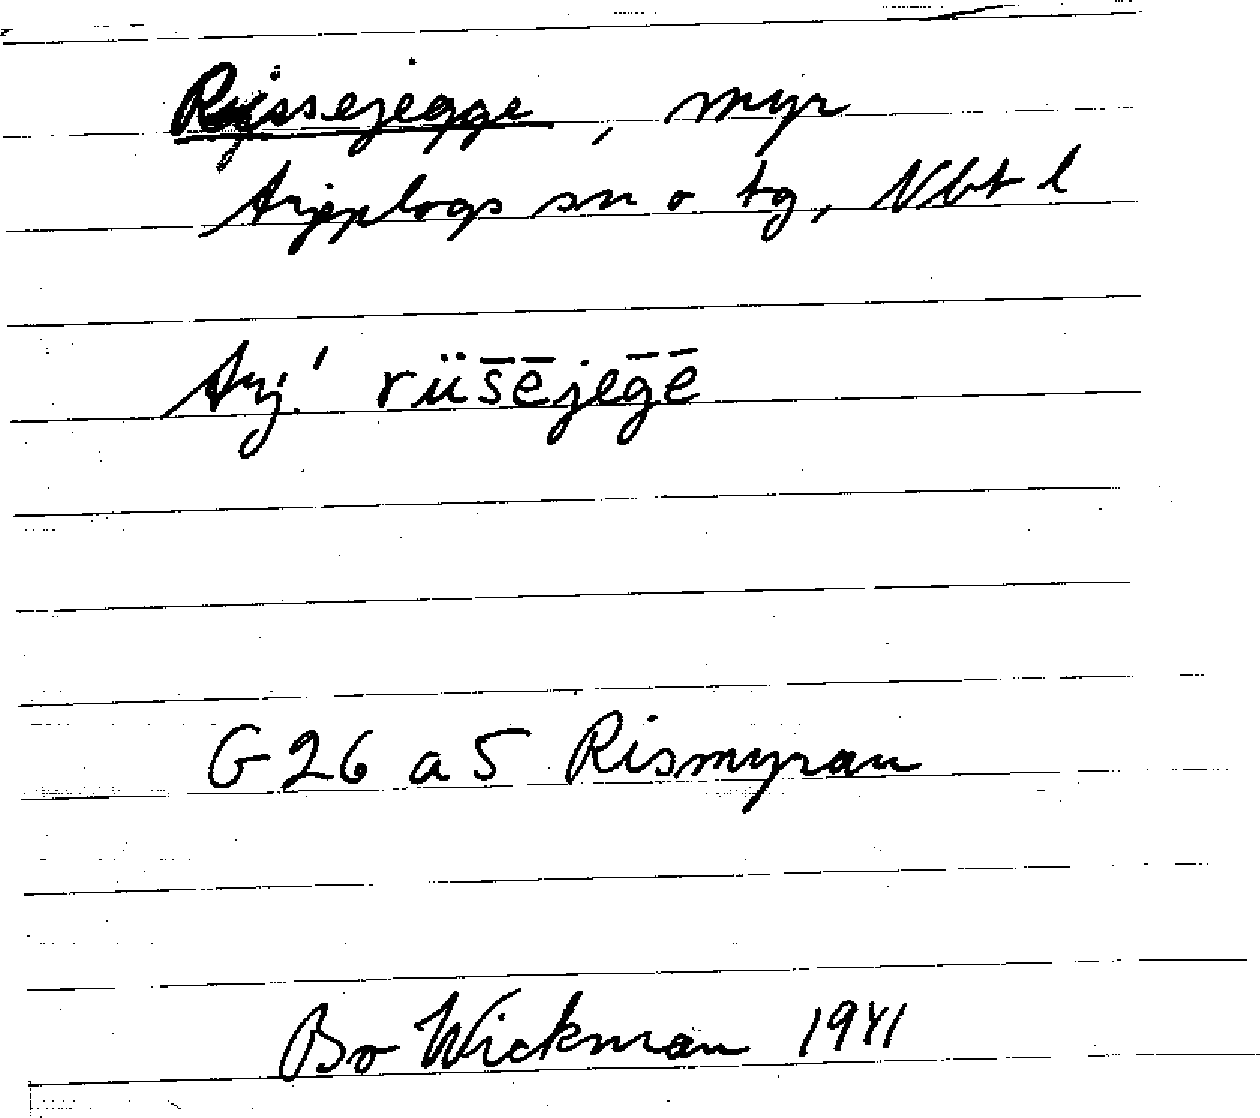 Rijssejegge, myr
Arjeplogs sn o tg, Nbt l
Arj. rüs̄ējeḡē
G26 a5 Rismyran
Bo Wickman 1941